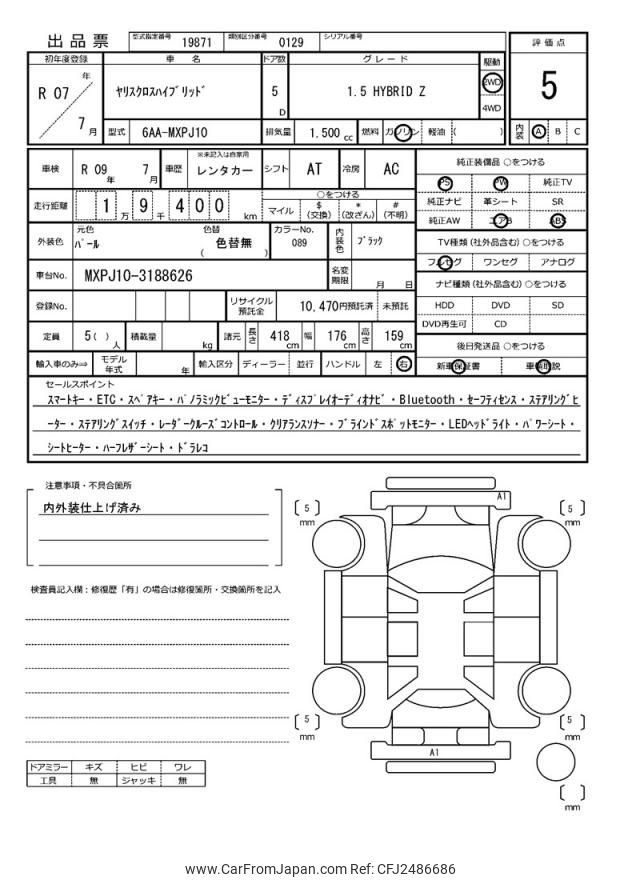 出品票 型式指定番号 19871 類別区分番号 0129 シリアル番号
初年度登録 車名 ドア数 グレード 駆動 評価点
R 07 年 7 月 ヤリスクロスハイブリッド 5 D 1.5 HYBRID Z 2WD 4WD 5
型式 6AA-MXPJ10 排気量 1.500 cc 燃料 ガソリン 軽油 ( ) 内装 A B C
車検 R 09 年 7 月 車歴 ※未記入は自家用 レンタカー シフト AT 冷房 AC
走行距離 1 万 9 千 4 0 0 km ○をつける マイル $ (交換) * (改ざん) # (不明)
外装色 元色 パール 色替 色替無 ( ) カラーNo. 089 内装色 ブラック
車台No. MXPJ10-3188626 名変期限 月 日
登録No. リサイクル預託金 10,470円預託済 未預託
定員 5( ) 人 積載量 kg 諸元 長さ 418 cm 幅 176 cm 高さ 159 cm
輸入車のみ⇒ モデル年式 年 輸入区分 ディーラー 並行 ハンドル 左 右
純正装備品 ○をつける
PS PW 純正TV
純正ナビ 革シート SR
純正AW エアB ABS
TV種類 (社外品含む) ○をつける
フルセグ ワンセグ アナログ
ナビ種類 (社外品含む) ○をつける
HDD DVD SD
DVD再生可 CD
後日発送品 ○をつける
新車保証書 車輌取説
セールスポイント
スマートキー・ETC・スペアキー・パノラミックビューモニター・ディスプレイオーディオナビ・Bluetooth・セーフティセンス・ステアリングヒ
ーター・ステアリングスイッチ・レーダークルーズコントロール・クリアランスソナー・ブラインドスポットモニター・LEDヘッドライト・パワーシート・
シートヒーター・ハーフレザーシート・ドラレコ
注意事項・不具合箇所
内外装仕上げ済み
検査員記入欄：修復歴「有」の場合は修復箇所・交換箇所を記入
A1
〔 5 〕 mm
〔 5 〕 mm
〔 5 〕 mm
〔 5 〕 mm
A1
〔 〕 mm
ドアミラー キズ ヒビ ワレ
工具 無 ジャッキ 無
www.CarFromJapan.com Ref: CFJ2486686